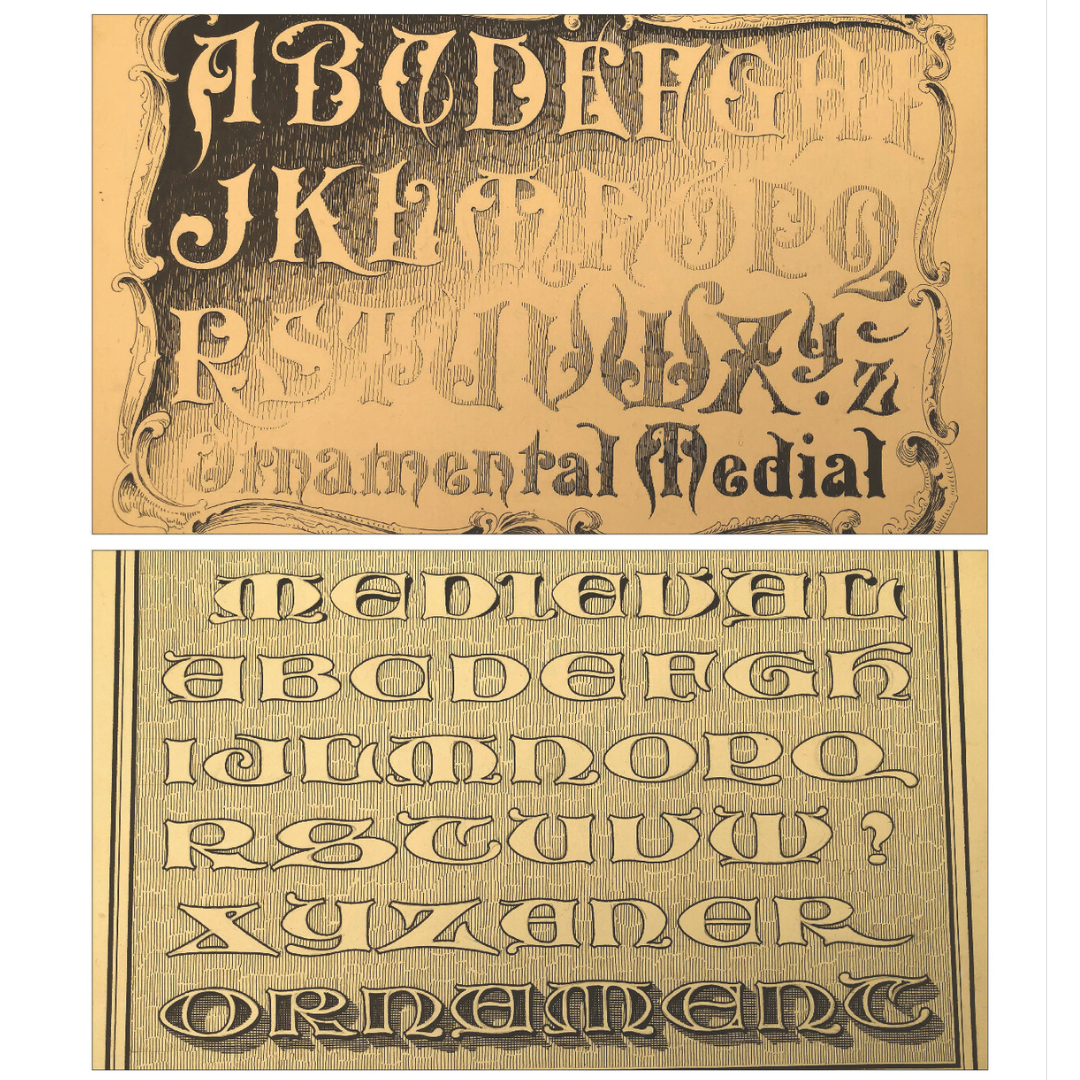 ABCDEFGHI
JKLMNOPQ
RSTUVWXY.Z
Ornamental Medial
MEDIEVAL
ABCDEFGH
IJLMNOPQ
RSTUVW?
XYZANER
ORNAMENT